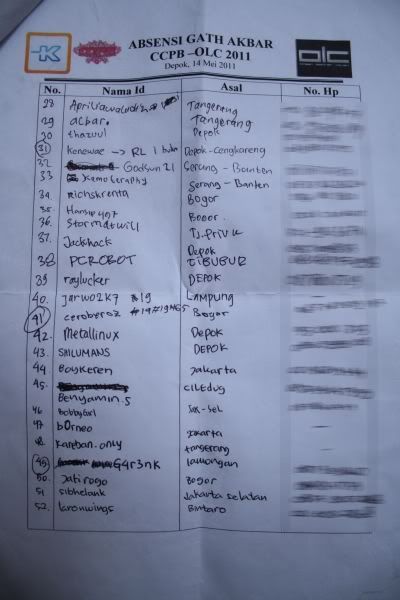 ABSENSI GATH AKBAR
CCPB –OLC 2011
Depok, 14 Mei 2011
K
olc
No. Nama Id Asal No. Hp
28 Tangerang
29 acbar. Tangerang
30 thazuul Depok
31 Kenewae → RL 1 Depok - Cengkareng
32 Godsun 21 Serang - Banten
33 Kamoteraphy Serang - Banten
34. Richskrenta Bogor
35. Bogor.
36. Stormatwill
37. Jackhack Depok
38 PCROBOT CIBUBUR
39 raylucker DEPOK
40. Jarwo2k7 #19 LAMPUNG
41 ceroberoz #19#19#65 Bogor
42. Metallinux DEPOK
43. SHILUMANS DEPOK
44. Boykeren Jakarta
45. Benyamin.5 CILEDUG
46 Bobbygirl Jak-Sel
47 b0rneo Jakarta
48. Kareban.only tangerang
49 G4r3nk lamongan
50. Jatirogo Bogor
51 sibhelank Jakarta selatan
52. laronwings Bintaro